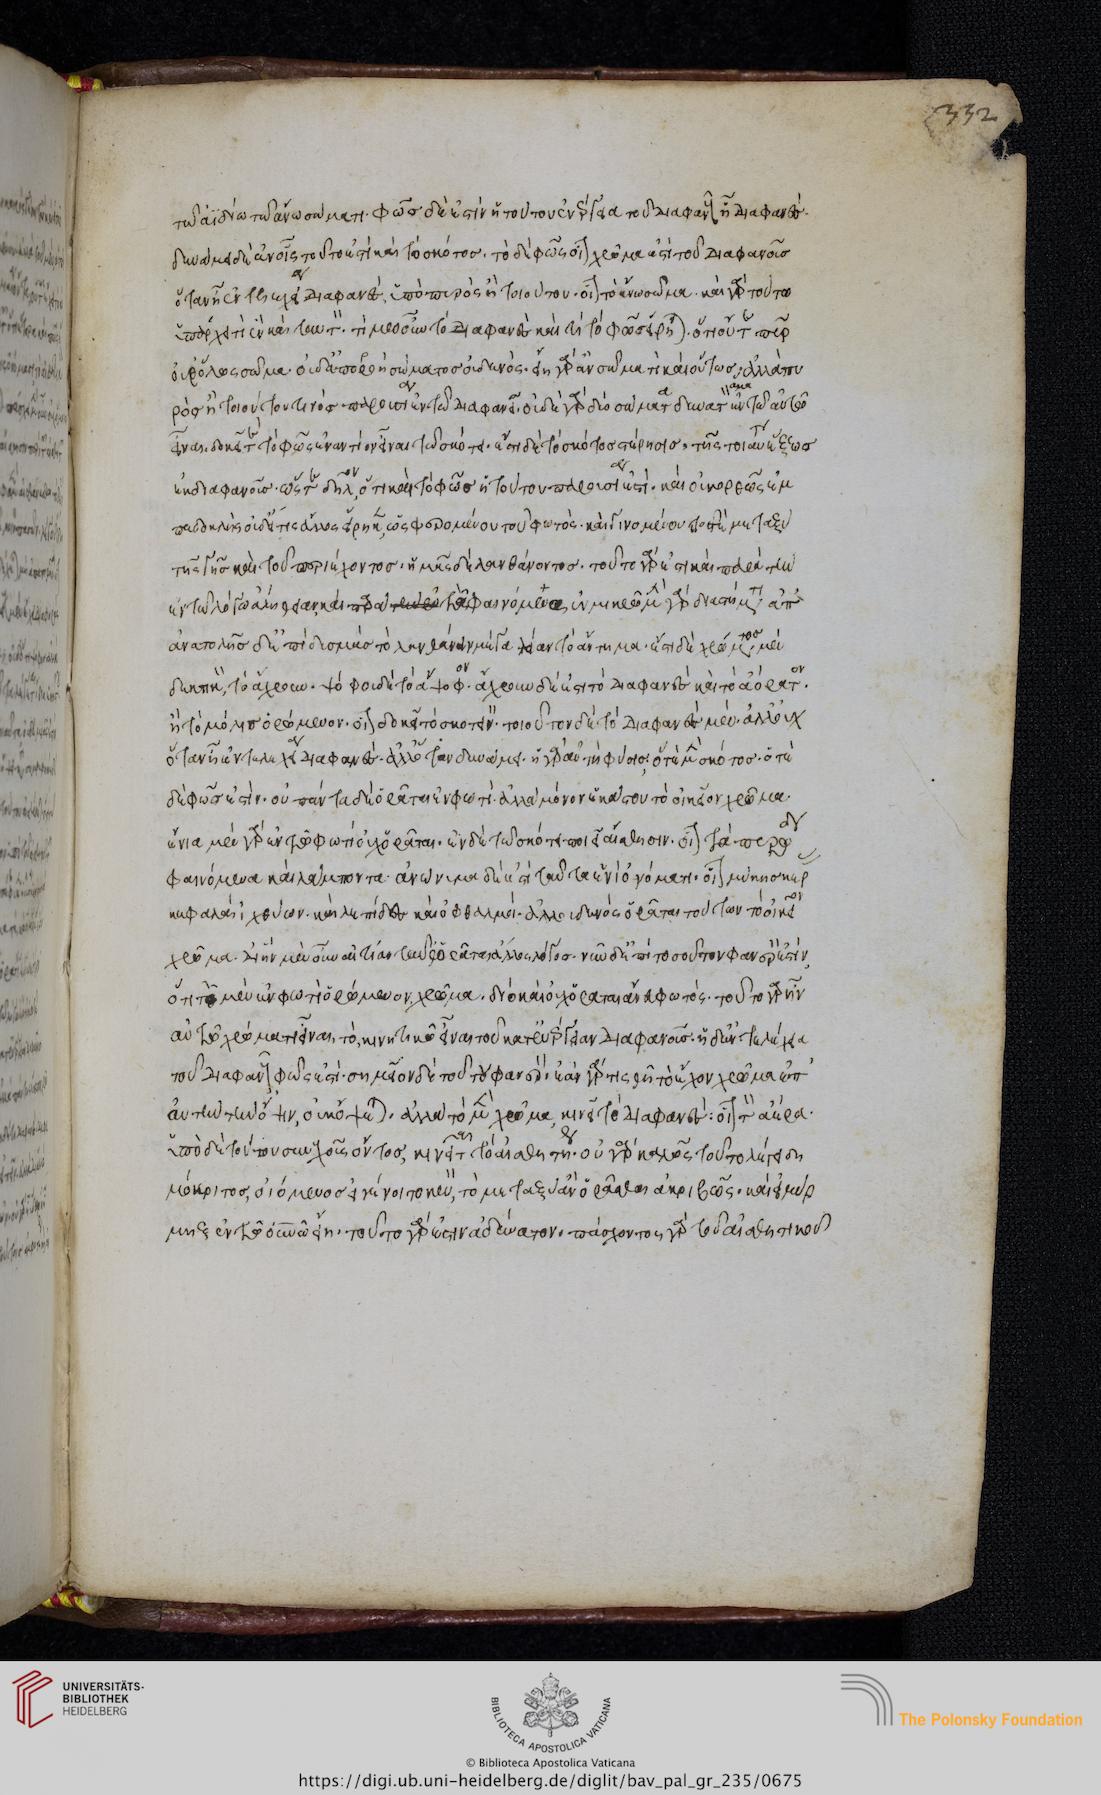 τῶ ἀϊδίω τῶ ἄνω σώματι. φῶς δέ ἐστιν ἡ τούτου ἐνέργεια τοῦ διαφανοῦς ἧ διαφανές.
δυνάμει δὲ ἐν οἷς τοῦτο ἐστὶ καὶ τὸ σκότος. τὸ δὲ φῶς οἷον χρῶμα ἐστὶ τοῦ διαφανοῦς
ὅταν ἦ ἐντελεχεία διαφανὲς, ὑπὸ πυρὸς ἢ τοιούτου. οἷον τὸ ἄνω σῶμα. καὶ γὰρ τούτω
ὑπάρχει τὶ ἓν καὶ ταυτόν. τί μὲν οὖν τὸ διαφανὲς καὶ τί τὸ φῶς εἴρηται. ὅτι οὔτε πῦρ
οὐθ' ὅλως σῶμα. οὐδ' ἀπορροὴ σώματος οὐδενός. εἴη γὰρ ἂν σῶμα τί καὶ οὕτως. ἀλλὰ πυ
ρὸς ἢ τοιούτου τινὸς παρουσία ἐν τῶ διαφανεῖ. οὐδὲ γὰρ δύο σώματα δυνατὸν ἅμα ἐν τῶ αὐτῶ
εἶναι. δοκεῖ τε τὸ φῶς ἐναντίον εἶναι τῶ σκότει. ἔστι δὲ τὸ σκότος στέρησις τῆς τοιαύτης ἕξεως
ἐκ διαφανοῦς. ὥστε δῆλον, ὅτι καὶ τὸ φῶς ἡ τούτου παρουσία ἐστί. καὶ οὐκ ὀρθῶς ἐμ
πεδοκλῆς οὐδ' εἴ τις ἄλλος εἴρηκεν, ὡς φερομένου τοῦ φωτὸς. καὶ γινομένου ποτὲ μεταξὺ
τῆς γῆς καὶ τοῦ περιέχοντος. ἡμᾶς δὲ λανθάνοντος. τοῦτο γὰρ ἐστὶ καὶ παρὰ τὴν
ἐν τῶ λόγω ἀλήθειαν, καὶ παρὰ τὰ φαινόμενα, ἐν μικρῶ μὲν γὰρ διαστήματι ἀπ'
ἀνατολῆς δ' ἐπὶ δυσμὰς τὸ λανθάνειν μέγα λίαν τὸ αἴτημα. ἔστι δὲ χρώματος μὲν
δεκτικὸν, τὸ ἄχρουν. ψόφου δὲ τὸ ἄψοφον. ἄχρουν δὲ ἐστὶ τὸ διαφανὲς καὶ τὸ ἀόρατον.
ἢ τὸ μόλις ὁρώμενον. οἷον δοκεῖ τὸ σκοτεινόν. τοιοῦτον δὲ τὸ διαφανὲς μὲν. ἀλλ' οὐχ
ὅταν ἦ ἐντελεχεία διαφανές. ἀλλ' ὅταν δυνάμει. ἡ γὰρ αὐτὴ φύσις, ὁτὲ μὲν σκότος. ὁτὲ
δὲ φῶς ἐστίν. οὐ πάντα δὲ ὁρᾶται ἐν φωτί. ἀλλὰ μόνον ἑκάστου τὸ οἰκεῖον χρῶμα.
ἔνια μὲν γὰρ ἐν τῶ φωτὶ οὐχ ὁρᾶται. ἐν δὲ τῶ σκότει ποιεῖ αἴσθησιν. οἷον τὰ πυρώδη
φαινόμενα καὶ λάμποντα. ἀνώνυμα δὲ ἐστὶ ταῦτα ἑνὶ ὀνόματι. οἷον μύκης κέρας
κεφαλαὶ ἰχθύων. καὶ λεπίδες καὶ ὀφθαλμοί. ἀλλ' οὐδενὸς ὁρᾶται τούτων τὸ οἰκεῖον
χρῶμα. δι' ἣν μὲν οὖν αἰτίαν ταῦθ' ὁρᾶται ἄλλος λόγος. νῦν δ' ἐπὶ τοσοῦτον φανερὸν ἐστὶν,
ὅτι τὸ μὲν ἐν φωτὶ ὁρώμενον, χρῶμα. διὸ καὶ οὐχ ὁρᾶται ἄνευ φωτός. τοῦτο γὰρ ἦν
αὐτῶ χρώματι εἶναι, τὸ κινητικῶ εἶναι τοῦ κατ' ἐνέργειαν διαφανοῦς. ἡ δ' ἐντελέχεια
τοῦ διαφανοῦς φῶς ἐστί. σημεῖον δὲ τούτου φανερόν. ἐὰν γάρ τις θῆ τὸ ἔχον χρῶμα ἐπ'
αὐτὴν τὴν ὄψιν, οὐκ ὄψεται. ἀλλὰ τὸ μὲν χρῶμα, κινεῖ τὸ διαφανὲς. οἷον τὸν ἀέρα.
ὑπὸ δὲ τούτου συνεχοῦς ὄντος, κινεῖται τὸ αἰσθητήριον. οὐ γὰρ καλῶς τοῦτο λέγει δη
μόκριτος, οἰόμενος εἰ γένοιτο κενὸν, τὸ μεταξὺ ἂν ὁρᾶσθαι ἀκριβῶς. καὶ εἰ μύρ
μηξ ἐν τῶ οὐρανῶ εἴη. τοῦτο γὰρ ἐστὶν ἀδύνατον. πάσχοντος γὰρ τοῦ αἰσθητικοῦ
332
UNIVERSITÄTS-
BIBLIOTHEK
HEIDELBERG
BIBLIOTECA APOSTOLICA VATICANA
© Biblioteca Apostolica Vaticana
The Polonsky Foundation
https://digi.ub.uni-heidelberg.de/diglit/bav_pal_gr_235/0675